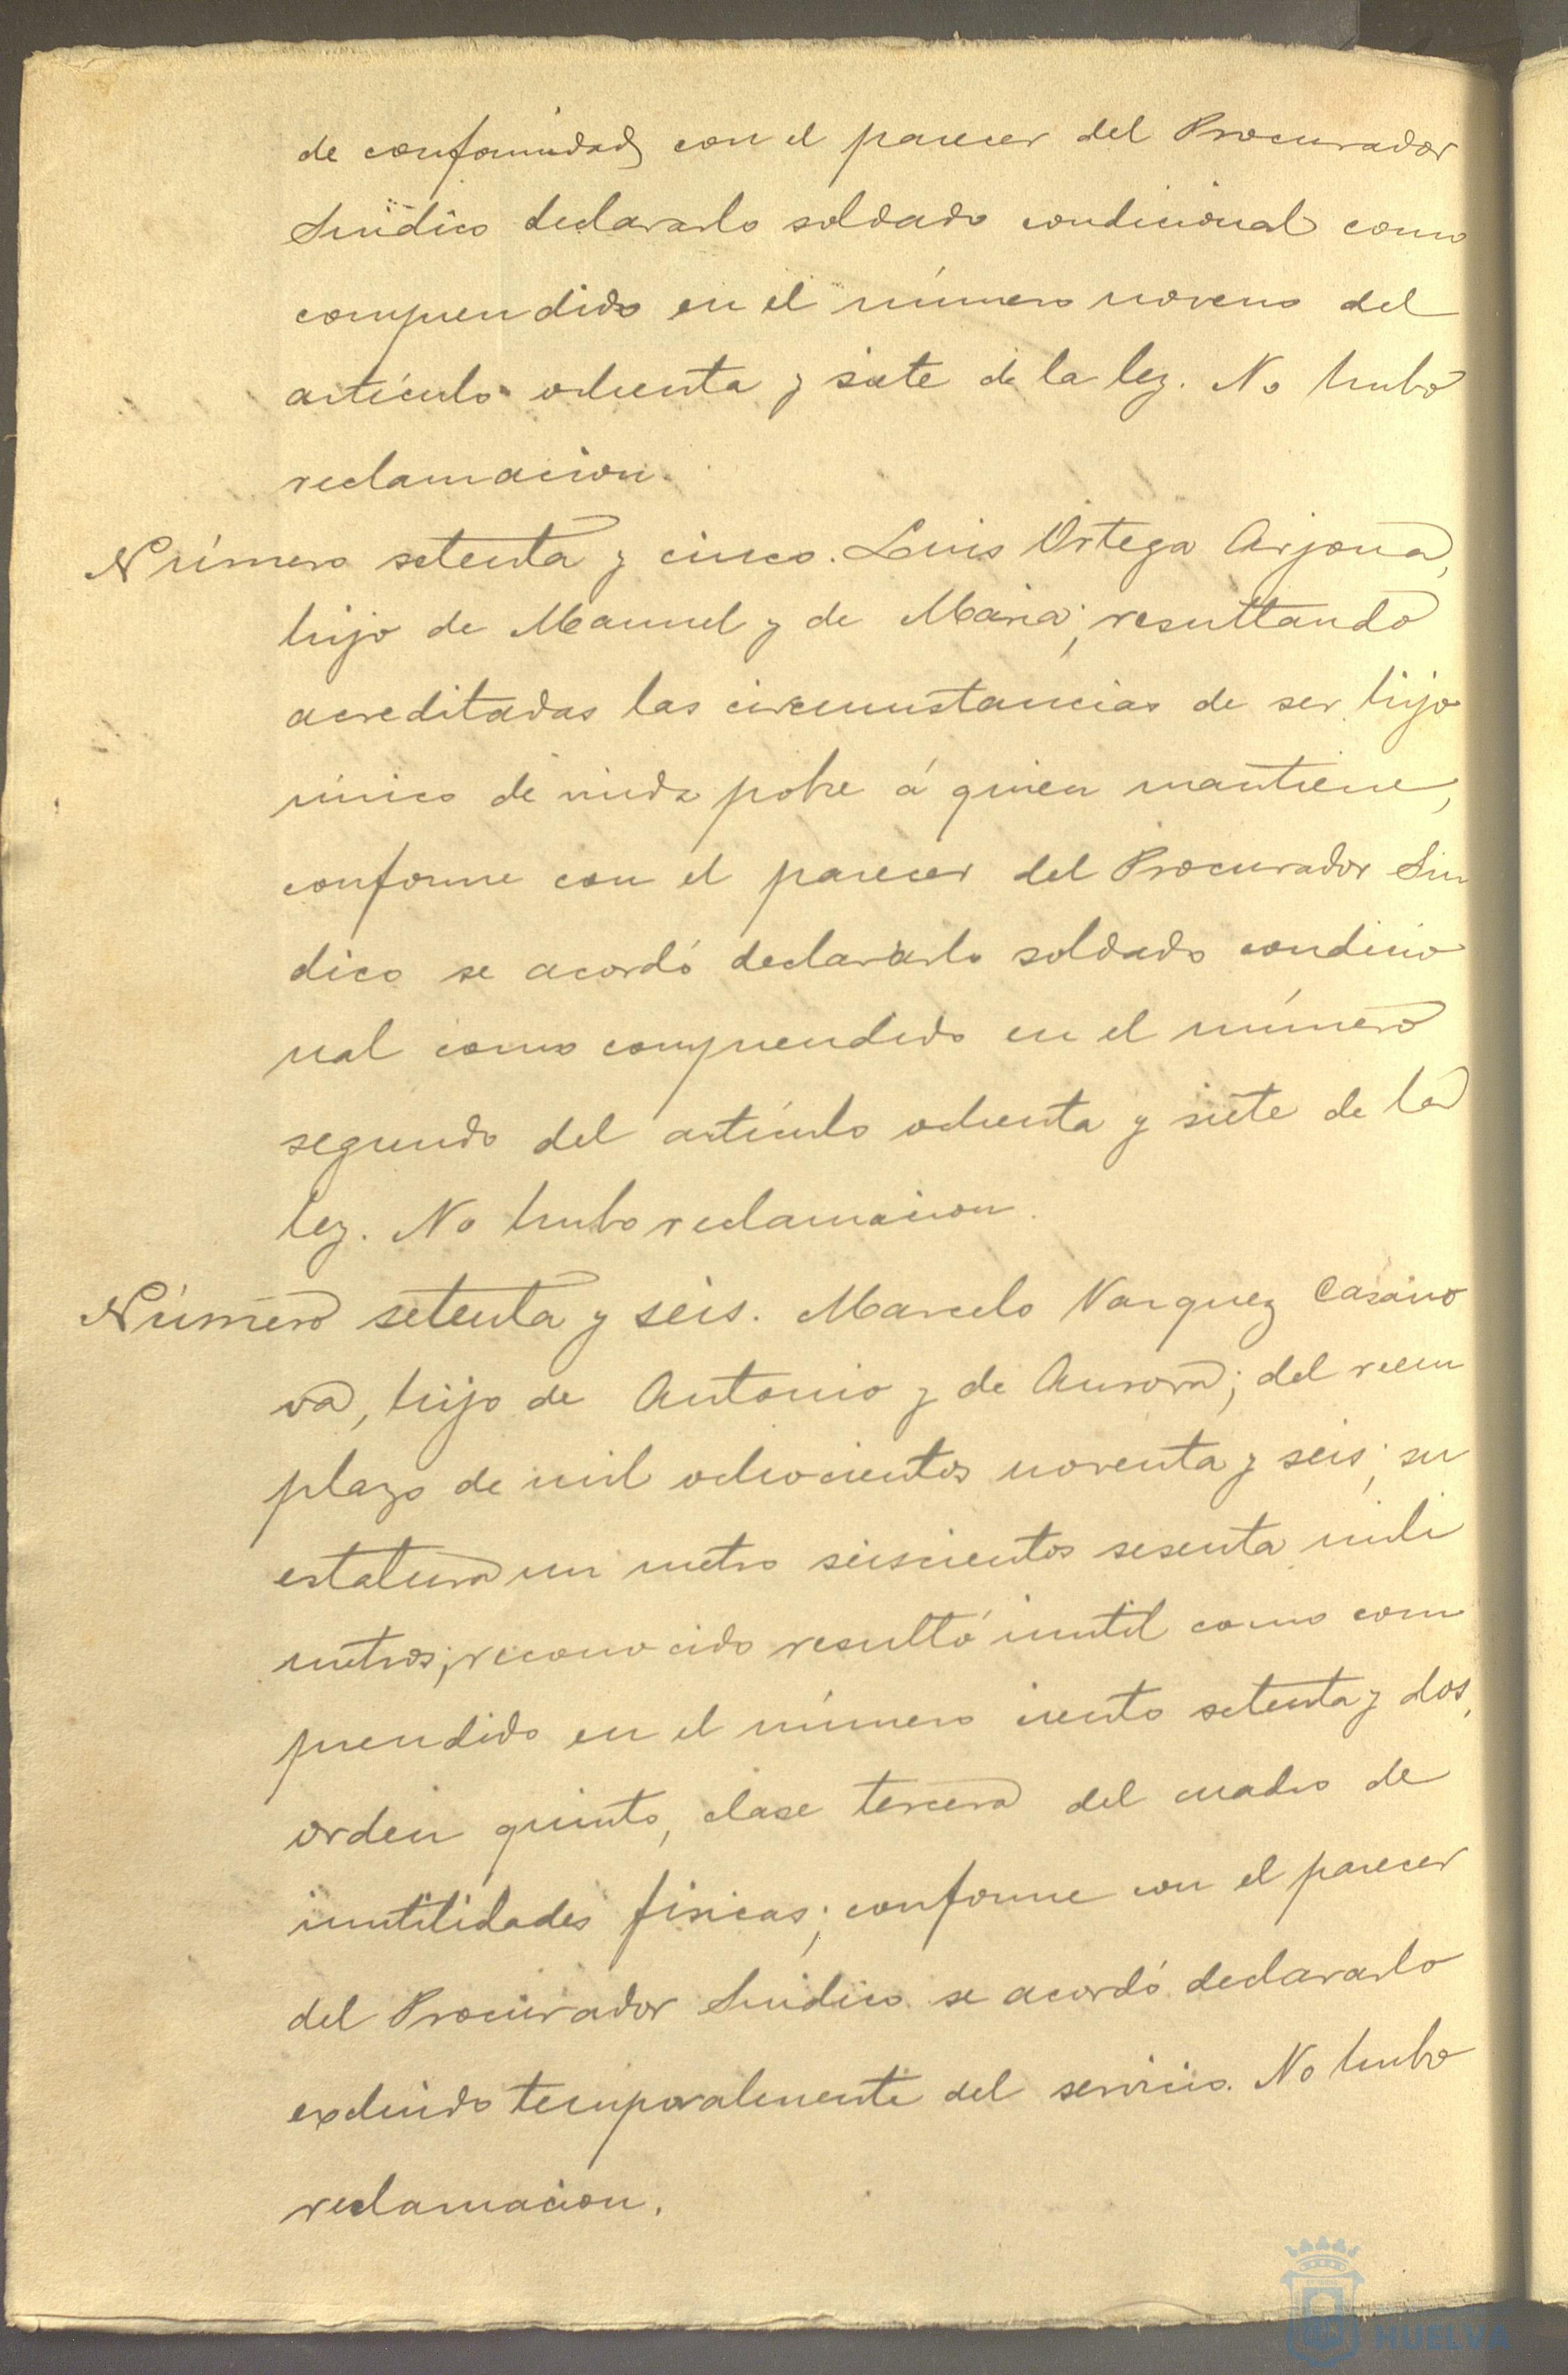 de conformidad con el parecer del Procurador
Sindico declararlo soldado condicional como
comprendido en el número noveno del
artículo ochenta y siete de la ley. No hubo
reclamacion.
Número setenta y cinco. Luis Ortega Arjona,
hijo de Manuel y de Maria; resultando
acreditadas las circunstancias de ser hijo
único de viuda pobre á quien mantiene,
conforme con el parecer del Procurador Sin
dico se acordó declararlo soldado condicio
nal como comprendido en el número
segundo del artículo ochenta y siete de la
ley. No hubo reclamacion.
Número setenta y seis. Marcelo Vazquez Casano
va, hijo de Antonio y de Aurora; del reem
plazo de mil ochocientos noventa y seis; su
estatura un metro seiscientos sesenta mili
metros; reconocido resultó inutil como com
prendido en el número ciento setenta y dos,
orden quinto, clase tercera del cuadro de
inutilidades fisicas; conforme con el parecer
del Procurador Sindico se acordó declararlo
excluido temporalmente del servicio. No hubo
reclamacion.
HUELVA